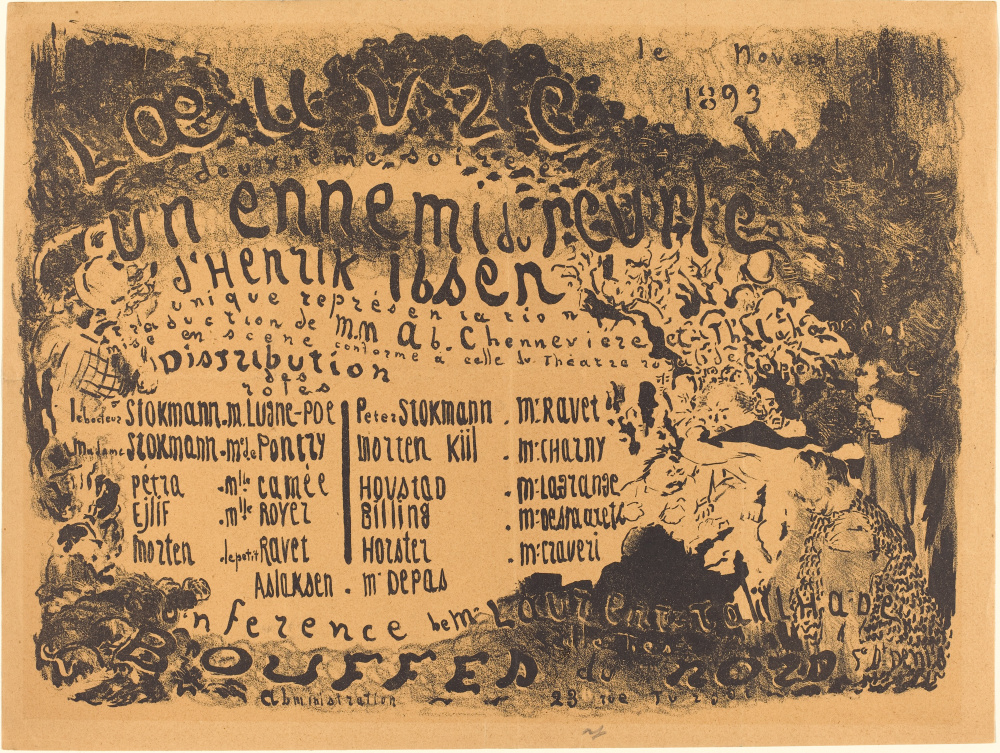 le Novemb
1893
L'OEUVRE
deuxième soirée
un ennemi du peuple
d'Henrik Ibsen
unique représentation
traduction de M.M Ab. Chenneviere et
mise en scène conforme à celle du Théatre
Distribution
des
roles
le docteur Stokmann . m. Lugné-Poe
Madame Stokmann . Me de Pontry
pétra . mlle camée
Ejlif . mlle Royer
Morten . le petit Ravet
Peter Stokmann . Mr Ravet
Morten Kiil . Mr Charny
Hovstad . Mr Lagrange
Billing . Mr Desmarets
Horster . Mr Craveri
Aslaksen . mr DEPAS
Conference de Mr Laurent-Tailhade
BOUFFES du NORD
St Denis
Administration 23 rue Turgot